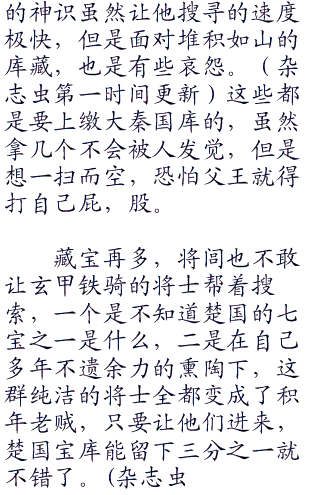 的神识虽然让他搜寻的速度
极快，但是面对堆积如山的
库藏，也是有些哀怨。（杂
志虫第一时间更新）这些都
是要上缴大秦国库的，虽然
拿几个不会被人发觉，但是
想一扫而空，恐怕父王就得
打自己屁，股。
藏宝再多，将闾也不敢
让玄甲铁骑的将士帮着搜
索，一个是不知道楚国的七
宝之一是什么，二是在自己
多年不遗余力的熏陶下，这
群纯洁的将士全都变成了积
年老贼，只要让他们进来，
楚国宝库能留下三分之一就
不错了。(杂志虫